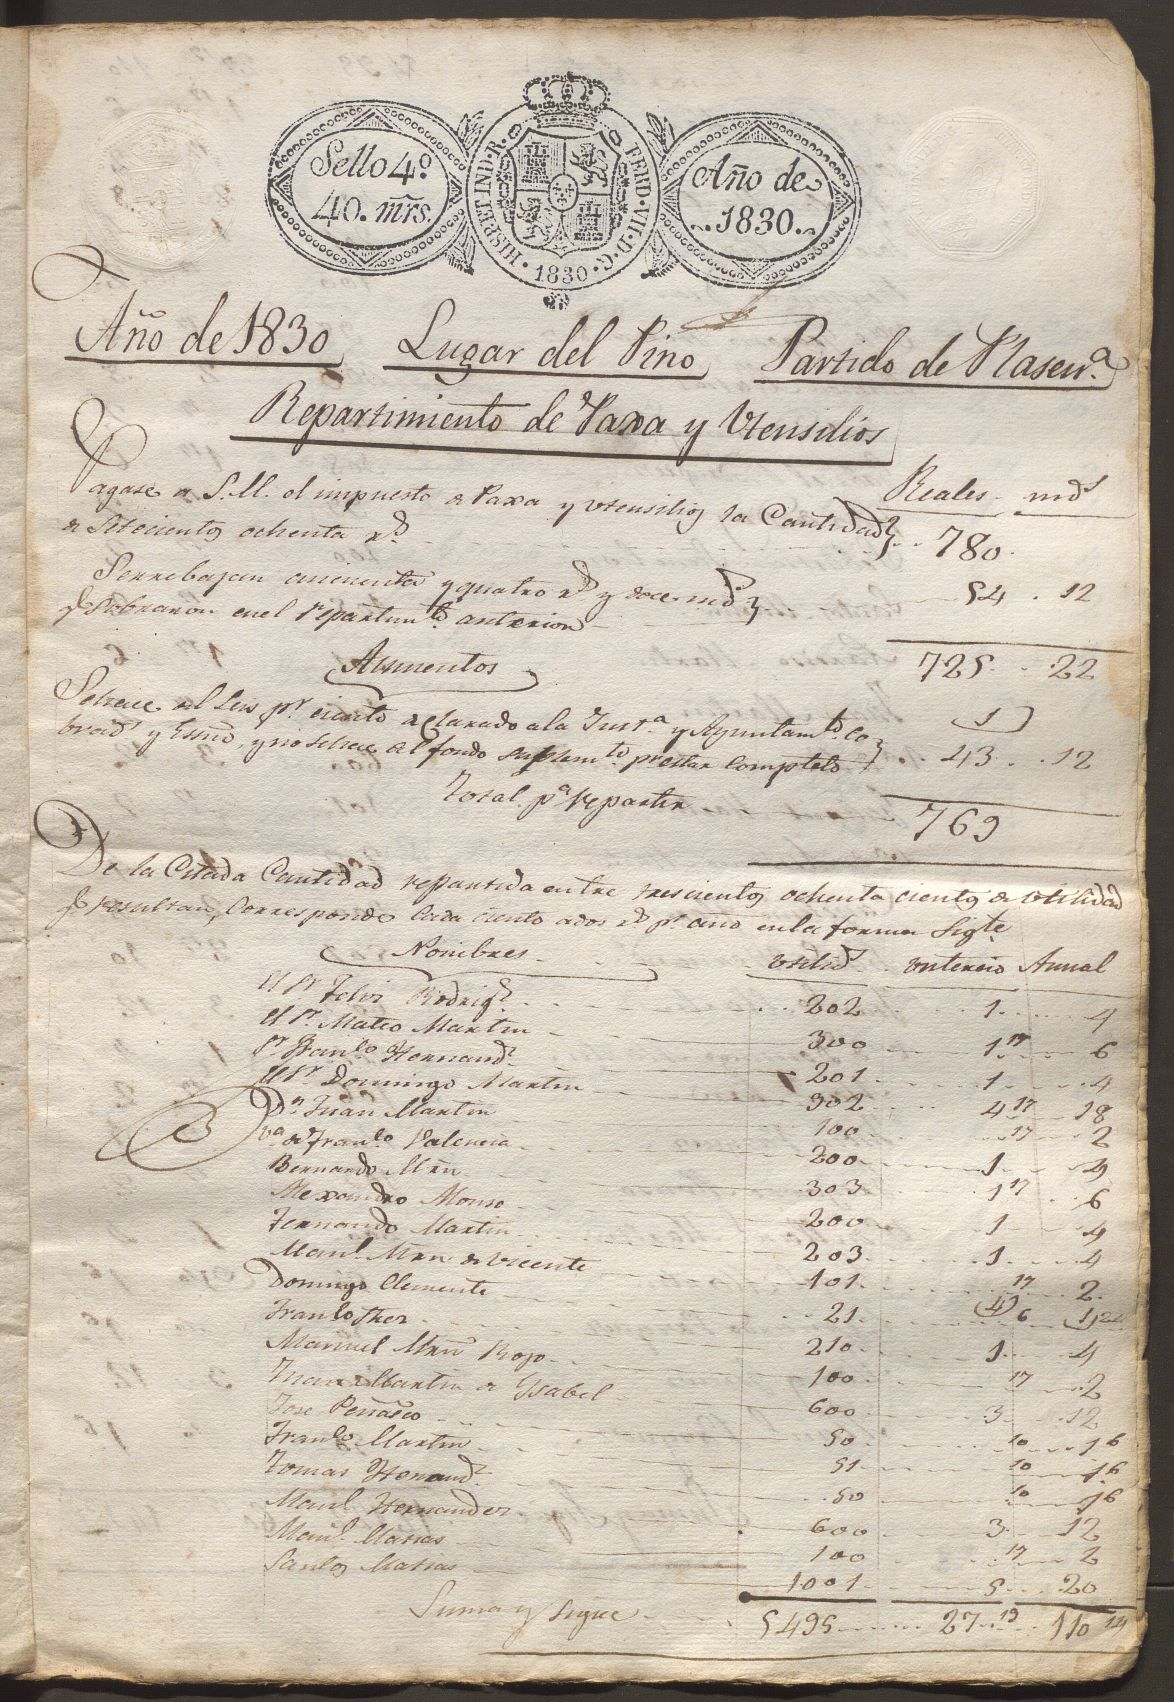 Sello 4º
40. mrs.
HISP. ET IND. R.
FERD. VII. D. G.
1830
Año de
1830.
Año de 1830 Lugar del Pino Partido de Plasena.
Repartimiento de Paxa y Vtensilios
Reales mds
Pagase a S. M. el impuesto de Paxa y vtensilios la Cantidad
de Setecientos ochenta rs. 780
Serrebajan cincuenta y quatro rs y doce mds
q. Sobraron en el repartimto anterior 54 12
725 22
Aumentos 1
Sehace el Seis pr. ciento declarado ala Justa. y Ayuntamto. Co-
bradr y Esno, y no Sehace al fondo suplemto pr estar Completo 43 12
Total pa repartir 769
De la Citada Cantidad repartida entre trescientos ochenta cientos de utilidad
q. resultan, Corresponde Cada ciento ados rs pr. año en la forma Sigte.
Nombres utilid un tercio Annual
El Sr Felix Rodrigz 202 1 4
El Sr. Mateo Martin 300 1 17 6
Sr Franco Hernandz 201 1 4
El Sr Domingo Martin 302 4 17 18
Dn Juan Martin 100 17 2
Va de Franco Valencia 200 1 4
Bernardo Mrn 303 1 17 6
Alexandro Alonso 200 1 4
Fernando Martin 203 1 4
Manl Mrn de Vicente 101 17 2
Domingo Clemente 21 (4) 6 1 24
Franco Sher 210 1 4
Manuel Mrn Rojo 100 17 2
Juan Martin de Ysabel 600 3 12
Jose Peñasco 50 10 1 6
Franco Martin 51 10 1 6
Tomas Hernandz 50 10 1 6
Manl Hernandez 600 3 12
Manl. Matias 100 17 2
Santos Matias 1001 5 20
Suma y Sigue 5495 27 19 110 14